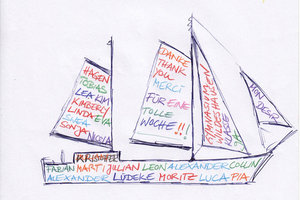 HAGEN
TOBIAS
LEA KIM
KIMBERLY
LINDA EVA
SVEA
SONJA
NICOLA
DANKE
THANK
YOU
MERCI
FÜR EINE
TOLLE
WOCHE!!
GYMNASIUM
WILDESHAUSEN
KLASSE
VON DER
FABIAN MARTI JULIAN LEON ALEXANDER COLLIN
ALEXANDER LÜDEKE MORITZ LUCA PIA